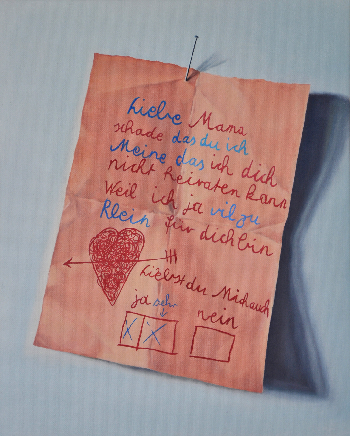 Liebe Mama
schade das du ich
Meine das ich dich
nicht heiraten kann
Weil ich ja vil zu
klein für dich bin
Liebst du Mich auch
ja sehr nein